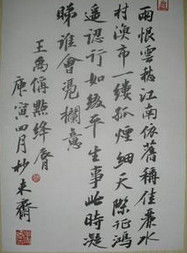 雨恨雲愁江南依舊稱佳麗水
村漁市一縷孤煙細天際征鴻
遥認行如綴平生事此時凝
睇誰會憑欄意
王禹偁點絳脣
庚寅四月杪来齋